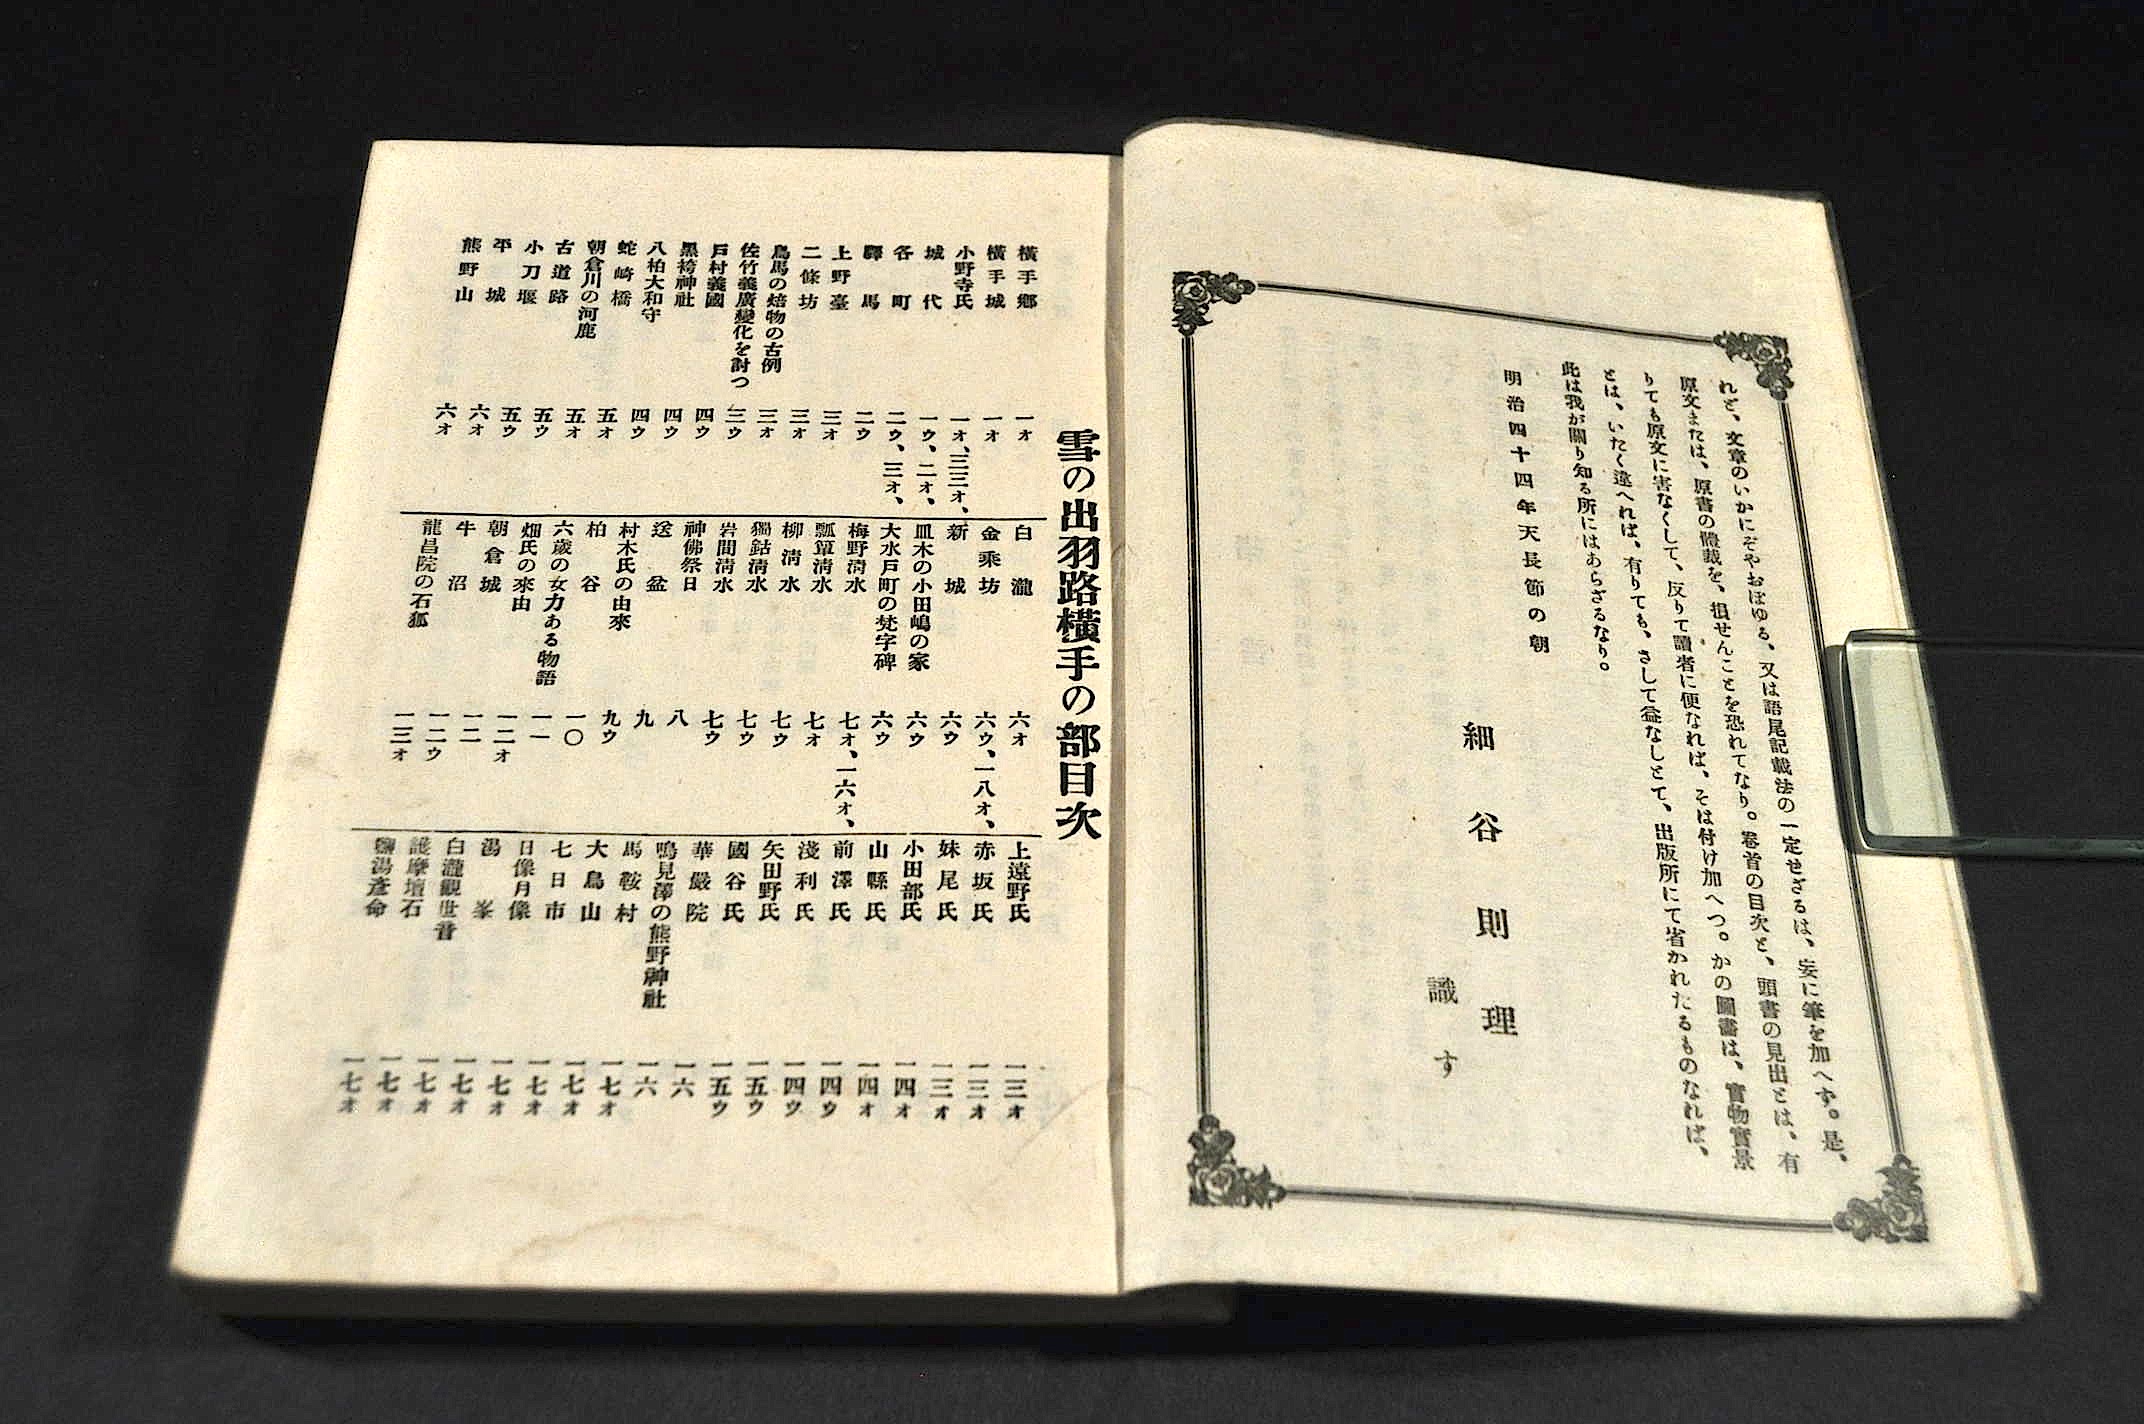 れど、文章のいかにぞやおぼゆる、又は語尾記載法の一定せざるは、妄に筆を加へす。是、
原文または、原書の體裁を、損せんことを恐れてなり。卷首の目次と、頭書の見出とは、有
りても原文に害なくして、反りて讀者に便なれば、そは付け加へつ。かの圖書は、實物實景
とは、いたく違へれば、有りても、さして益なしとて、出版所にて省かれたるものなれば、
此は我が關り知る所にはあらざるなり。
明治四十四年天長節の朝
細谷則理
識す
雪の出羽路橫手の部目次
橫手鄕 一ォ
橫手城 一ォ
小野寺氏 一ォ、三三ォ、
城代 一ゥ、二ォ、
各町 二ゥ、三ォ、
驛馬 二ゥ
上野臺 三ォ
二條坊 三ォ
鳥馬の焙物の古例 三ォ
佐竹義廣變化を討つ 三ゥ
戸村義國 四ゥ
黑袴神社 四ゥ
八柏大和守 四ゥ
蛇崎橋 五ォ
朝倉川の河鹿 五ォ
古道路 五ゥ
小刀堰 五ゥ
平城 六ォ
熊野山 六ォ
白瀧 六ォ
金乘坊 六ゥ、一八ォ、
新城 六ゥ
皿木の小田嶋の家 六ゥ
大水戸町の梵字碑 六ゥ
梅野淸水 七ォ、一六ォ、
瓢簞淸水 七ォ
柳淸水 七ゥ
獨鈷淸水 七ゥ
岩間淸水 七ゥ
神佛祭日 八
送盆 九
村木氏の由來 九ゥ
柏谷 一〇
六歲の女力ある物語 一一
畑氏の來由 一二ォ
朝倉城 一二
牛沼 一二ゥ
龍昌院の石狐 一三ォ
上遠野氏 一三ォ
赤坂氏 一三ォ
妹尾氏 一三ォ
小田部氏 一四ォ
山縣氏 一四ォ
前澤氏 一四ゥ
淺利氏 一四ゥ
矢田野氏 一五ゥ
國谷氏 一五ゥ
華嚴院 一六
鳴見澤の熊野神社 一六
馬鞍村 一七ォ
大鳥山 一七ォ
七日市 一七ォ
日像月像 一七ォ
湯峯 一七ォ
白瀧觀世音 一七ォ
護摩壇石 一七ォ
鹽湯彥命 一七ォ